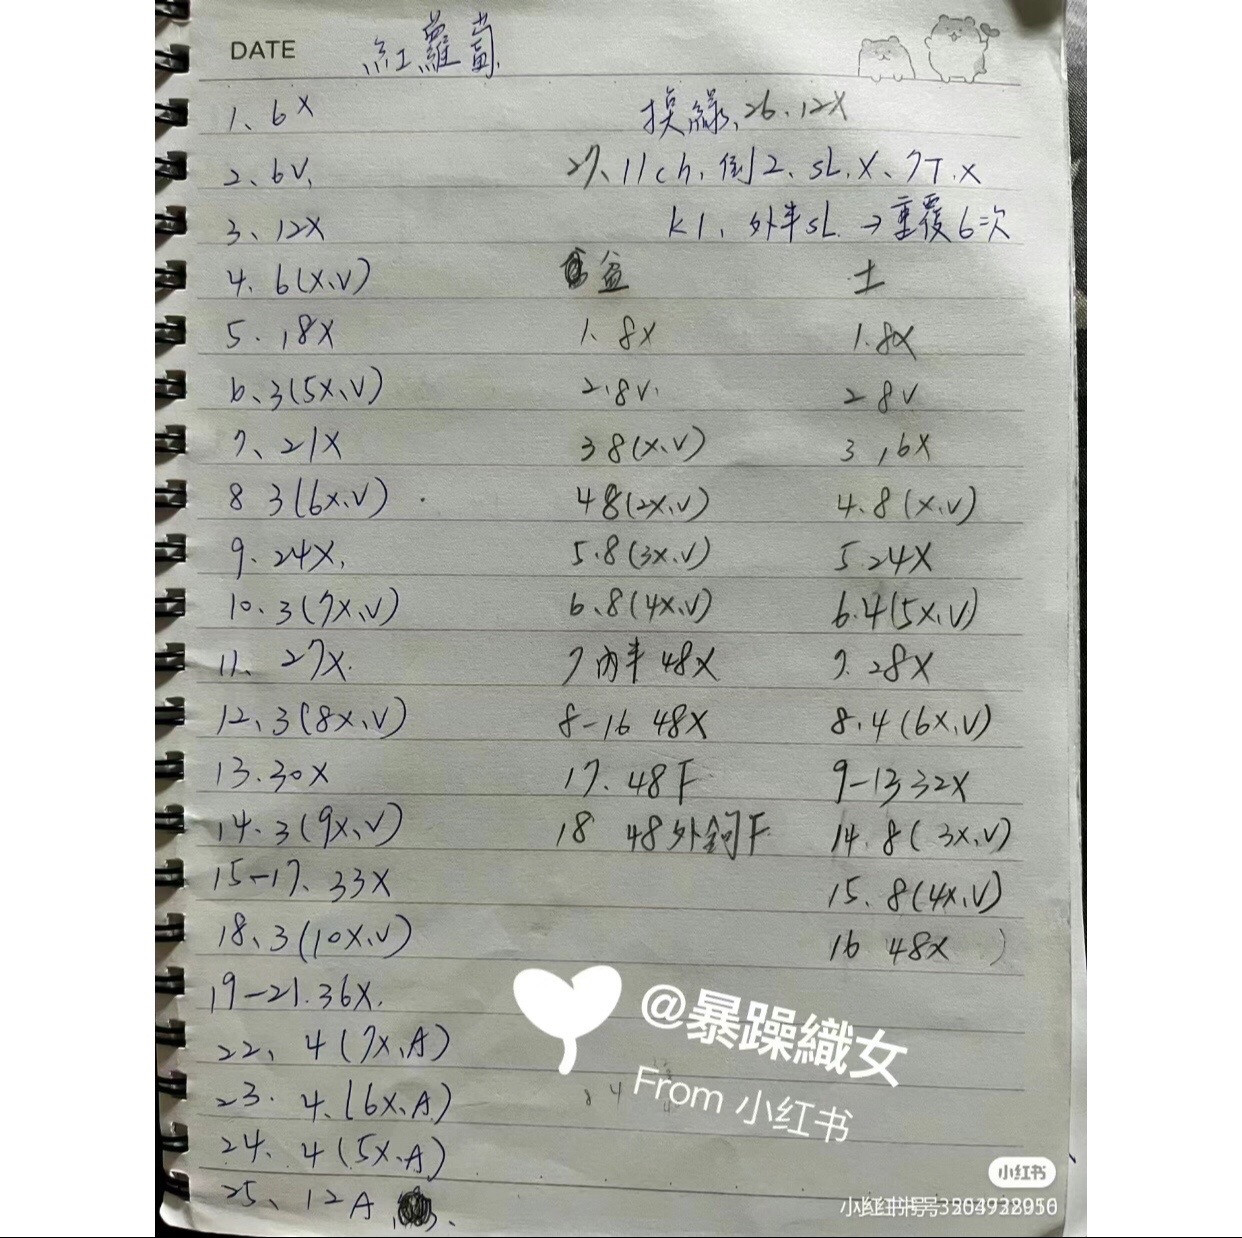 DATE 紅蘿蔔
1、6X
2、6V、
3、12X
4. 6(X,V)
5. 18X
6、3(5X、V)
7、21X
8 3(6X,V)
9. 24X,
10. 3(7X、V)
11、27X.
12、3(8X,V)
13.30X
14. 3(9X,V)
15-17. 33X
18、3(10X,V)
19-21.36X.
22、4(7X,A)
23. 4.(6X、A)
24、4(5X、A)
25、12A
換綠、26、12X
27、11ch、倒2、SL.X、7T.X
K1、外半SL → 重覆6次
盆
1. 8X
2.8V.
3 8(X、V)
4 8(2X,V)
5.8(3X,V)
6、8(4X,V)
7 內半 48X
8-16 48X
17. 48F
18 48外鉤F
土
1.8X
2 8V
3 16X
4.8(X,V)
5.24X
6.4(5X,V)
7. 28X
8.4(6X,V)
9-13 32X
14. 8(3X,V)
15、8(4X,V)
16 48X
@暴躁織女
From 小红书
小红书